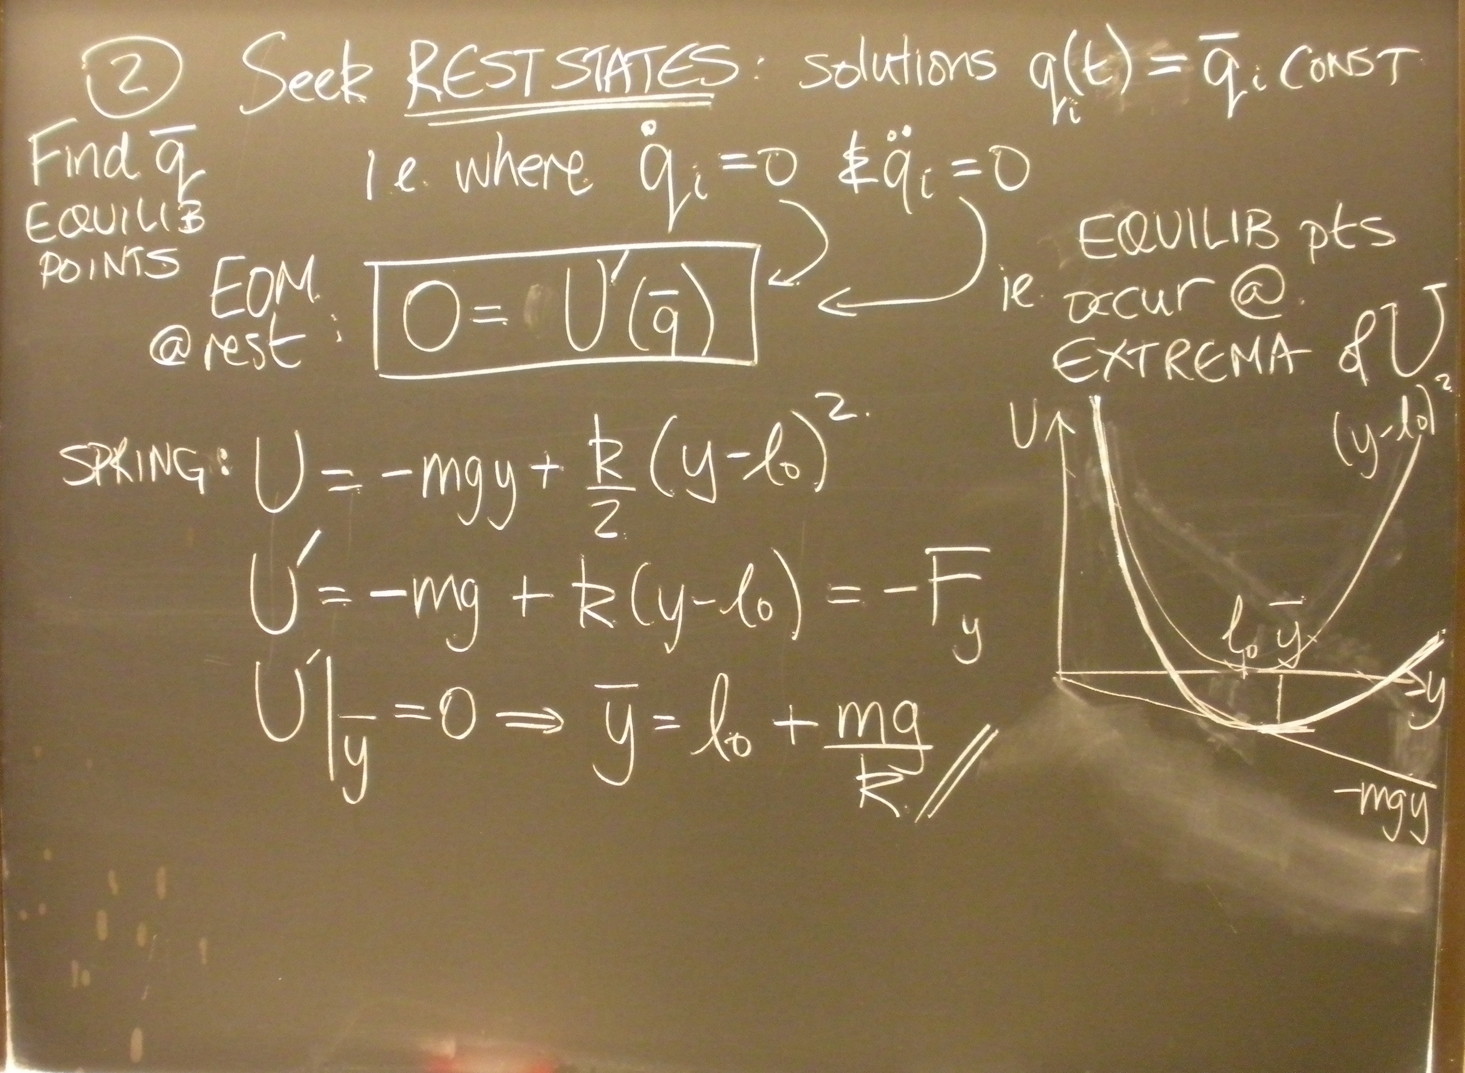 ② Seek REST STATES: solutions qᵢ(t) = q̄ᵢ CONST
Find q̄
EQUILIB
POINTS
i.e. where q̇ᵢ = 0 & q̈ᵢ = 0
EOM
@ rest:
0 = U′(q̄)
ie. EQUILIB pts
occur @
EXTREMA of U
SPRING: U = -mgy + k/2 (y-l₀)².
U′ = -mg + k(y-l₀) = -F_y
U′|_ȳ = 0 ⇒ ȳ = l₀ + mg/k //
U
(y-l₀)²
l₀ ȳ
y
-mgy